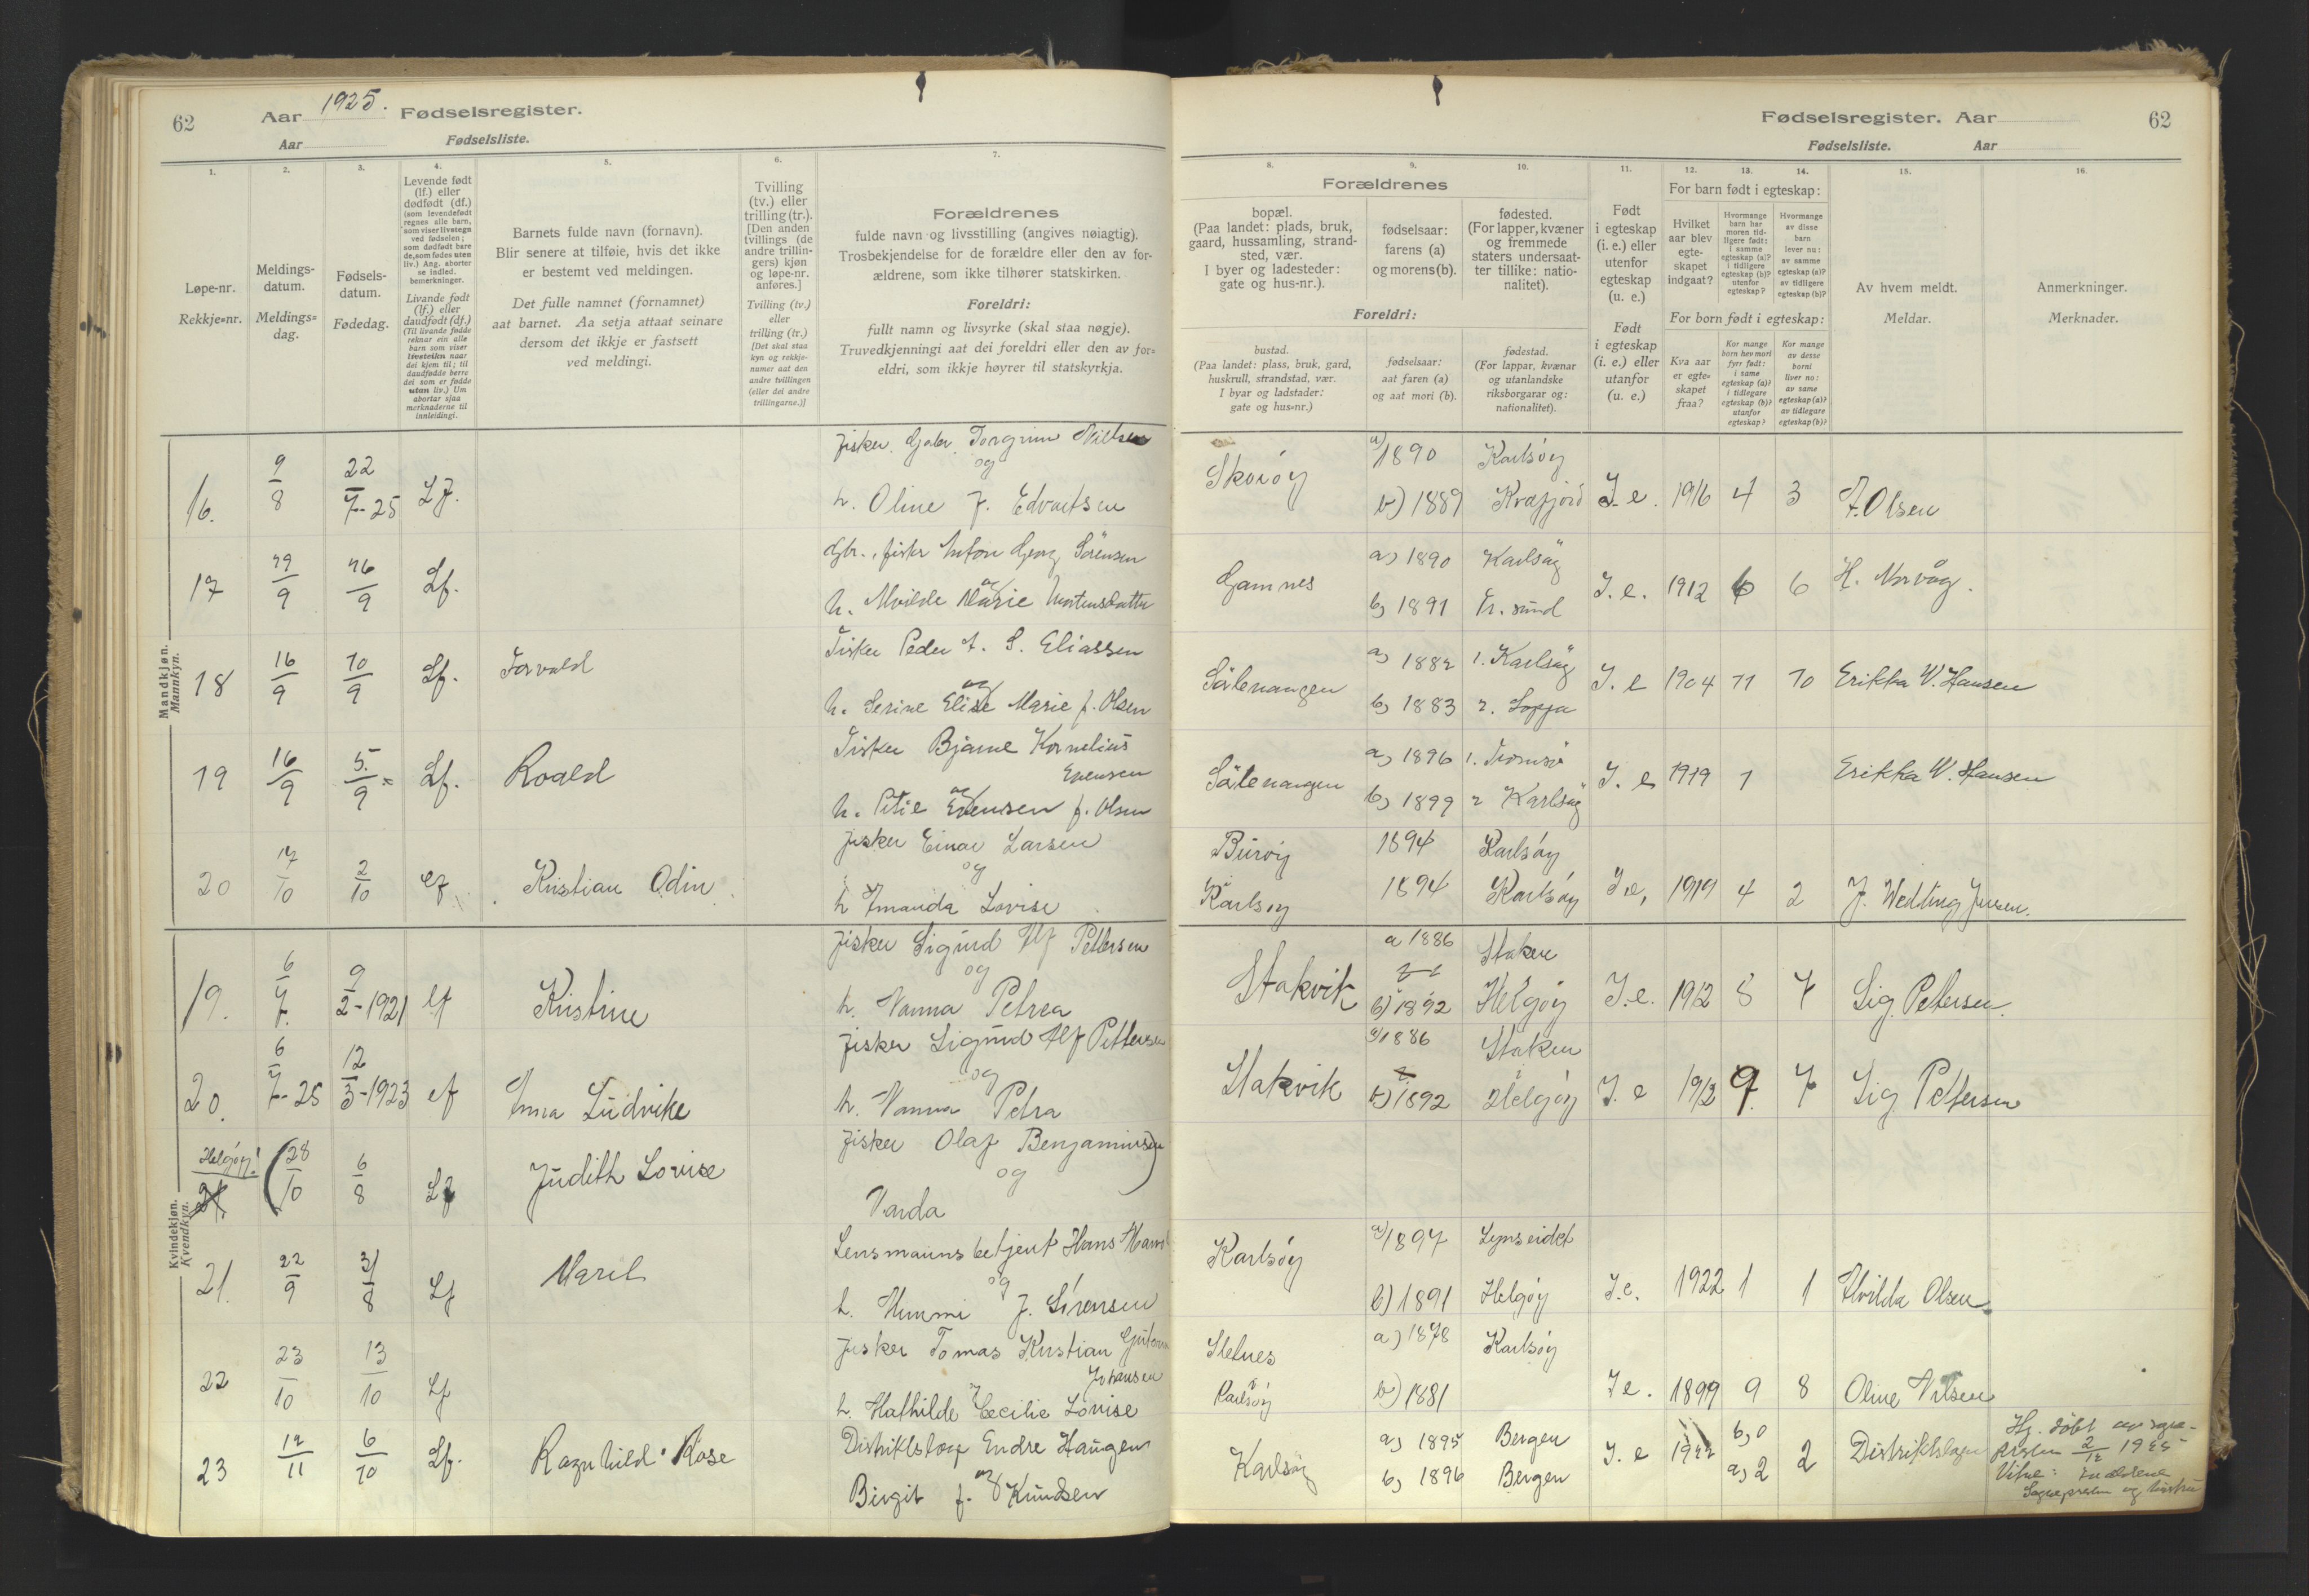 62
Aar 1925. Fødselsregister.
Aar Fødselsliste.
1.
2.
3.
4.
5.
6.
7.
Løpe-nr.
Rekkje=nr.
Meldings-
datum.
Meldings=
dag.
Fødsels-
datum.
Fødedag.
Levende født
(lf.) eller
dødfødt (df.)
(som levendefødt
regnes alle barn,
som viser livstegn
ved fødselen;
som dødfødt bare
de, som fødes uten
liv.) Ang. aborter
se indled.
bemerkninger.
Livande født
(lf.) eller
daudfødt (df.)
(Til livande fødde
reknar ein alle
barn som viser
livsteikn naar
dei kjem til; til
daudfødde berre
dei som er fødde
utan liv.) Um
abortar sjaa
merknaderne til
innleidingi.
Barnets fulde navn (fornavn).
Blir senere at tilføie, hvis det ikke
er bestemt ved meldingen.
Det fulle namnet (fornamnet)
aat barnet. Aa setja attaat seinare
dersom det ikkje er fastsett
ved meldingi.
Tvilling
(tv.) eller
trilling (tr.).
[Den anden
tvillings (de
andre trillin-
gers) kjøn
og løpe-nr.
anføres.]
Tvilling (tv.)
eller
trilling (tr.)
[Det skal staa
kyn og rekkje-
numer aat den
andre tvillingen
(eller dei andre
trillingarne.)]
Forældrenes
fulde navn og livsstilling (angives nøiagtig).
Trosbekjendelse for de forældre eller den av for-
ældrene, som ikke tilhører statskirken.
Foreldri:
fullt namn og livsyrke (skal staa nøgje).
Truvedkjenningi aat dei foreldri eller den av for=
eldri, som ikkje høyrer til statskyrkja.
Mandkjøn.
Mannkyn.
16. 9/8 22/7-25 Lf. fisker. Gabr. Torgrim Nilsen
og
h. Oline f. Edvartsen
17 29/9 16/9 Lf. Gbr., fisker Anton Georg Sörensen
og
h. Alvilde Marie Mortensdatter
18 16/9 10/9 Lf. Torvald Fisker Peder A. S. Eliassen
og
h. Serine Elise Marie f. Olsen
19 16/9 5./9 Lf. Roald Fisker Bjarne Kornelius
Evensen
og
h. Petie Evensen f. Olsen
20 17/10 2/10 lf Kristian Odin fisker Einar Larsen
og
h Amanda Lovise
Kvindekjøn.
Kvendkyn.
19. 6/7. 9/2-1921 lf Kristine fisker Sigurd Alf Pettersen
og
h. Nanna Petrea
20. 6/7-25 12/3-1923 lf Anna Ludvike fisker Sigurd Alf Pettersen
og
h. Nanna Petra
Helgøy!
21 (28/10 6/8 Lf Judith Lovise fisker Olaf Benjaminsen)
og
Varda
21. 22/9 31/8 Lf Marit Lensmannsbetjent Hans
og
h. Mimmi f. Sörensen
22 23/10 13/10 Lf fisker Tomas Kristian
Johansen
h. Mathilde Cecilie Lovise
23 12/11 6/10 Lf. Ragnhild Rose Distriktslæge Endre Haugen
og
Birgit f. Knudsen
Fødselsregister. Aar 62
Fødselsliste. Aar
8.
9.
10.
11.
12.
13.
14.
15.
16.
Forældrenes
bopæl.
(Paa landet: plads, bruk,
gaard, hussamling, strand-
sted, vær.
I byer og ladesteder:
gate og hus-nr.).
fødselsaar:
farens (a)
og morens (b).
fødested.
(For lapper, kvæner
og fremmede
staters undersaat-
ter tillike: natio-
nalitet).
Foreldri:
bustad.
(Paa landet: plass, bruk, gard,
huskrull, strandstad, vær.
I byar og ladstader:
gate og hus=nr.)
fødselsaar:
aat faren (a)
og aat mori (b).
fødestad.
(For lappar, kvænar
og utanlandske
riksborgarar og:
nationalitet).
Født
i egteskap
(i. e.) eller
utenfor
egteskap
(u. e.)
Født
i egteskap
(i. e.) eller
utanfor
(u. e.)
For barn født i egteskap:
Hvilket
aar blev
egte-
skapet
indgaat?
Hvormange
barn har
moren tid-
ligere født:
i samme
egteskap (a)?
i tidligere
egteskap (b)?
utenfor
egteskap?
Hvormange
av disse
barn
lever nu:
av samme
egteskap (a)?
av tidligere
egteskap (b)?
For born født i egteskap:
Kva aar
er egte=
skapet
fraa?
Kor mange
born hev mori
fyrr født:
i same
egteskap (a)?
i tidlegare
egteskap (b)?
utanfor
egteskap?
Kor mange
av desse
borni
liver no:
av same
egteskap (a)?
av tidlegare
egteskap (b)?
Av hvem meldt.
Meldar.
Anmerkninger.
Merknader.
Skorøy a) 1890 Karlsøy
b) 1889 Kvæfjord I. e. 1916 4 3 A. Olsen
Gamnes a) 1890 Karlsøy
b) 1891 Gr. sund I. e. 1912 6 6 H. Norvåg.
Sörlenangen a) 1882 1. Karlsøy
b) 1883 2. Loppa I. e 1904 11 10 Erikka W. Hansen
Sörlenangen a) 1896 1. Tromsö
b) 1899 2 Karlsøy I. e 1919 1 Erikka W. Hansen
Burøy 1894 Karlsøy
Karlsøy 1894 Karlsøy I e, 1919 4 2 J. Wedding Jensen.
Stakvik a 1886 Staken
b) 1892 Helgøy I. e. 1912 8 7 Sig. Pettersen.
Stakvik a) 1886 Staken
b) 1892 Helgøy I. e 1912 9. 7 Sig Pettersen
Karlsøy a) 1897 Lyngseidet
b) 1891 Helgøy I. e. 1922 1 1 Alvilda Olsen
Sletnes a) 1878 Karlsøy
Karlsøy b) 1881 I e. 1899 9 8 Oline Nilsen
Karlsøy a) 1895 Bergen b) 0
b) 1896 Bergen I. e 1922 a) 2 2 Distriktslægen
Hj. döbt av sogne-
presten 2/12 1925
Vitne: Forældrene
Sognepresten og